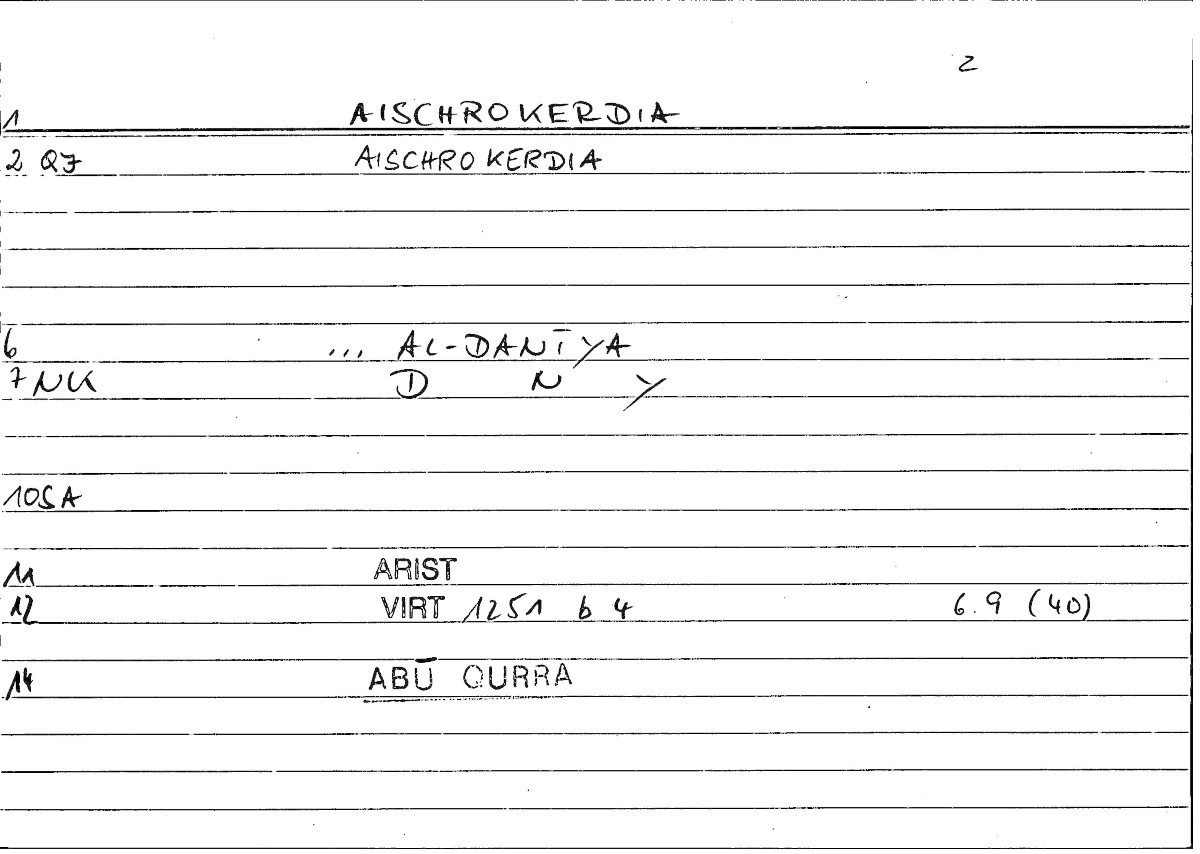 2
1 AISCHROKERDIA
2 QF AISCHROKERDIA
6 ... AL-DANĪYA
7 NK D N Y
10 SA
11 ARIST
12 VIRT 1251 b 4 6.9 (40)
14 ABŪ QURRA